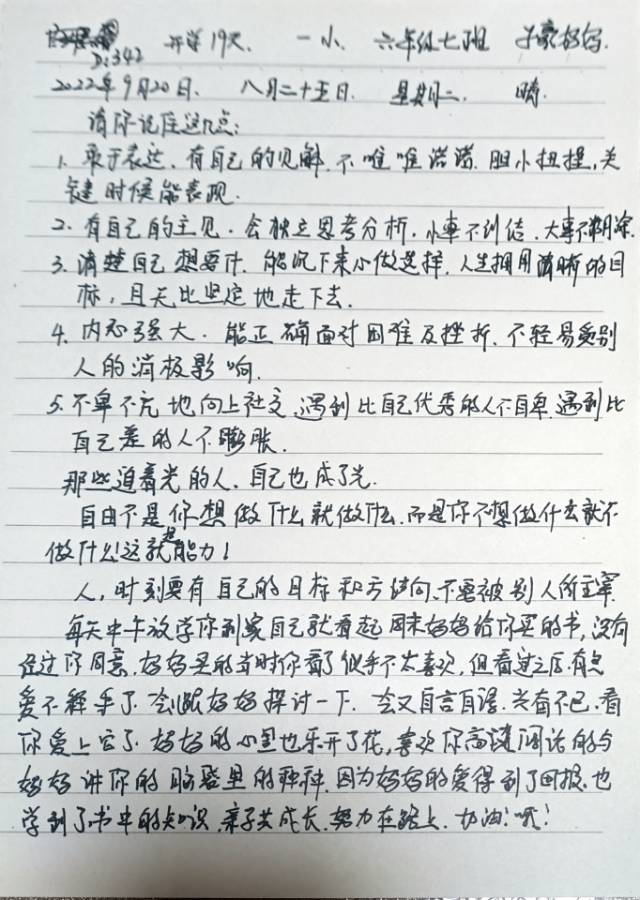 D:342 开学19天、 一小、 六年级七班 子豪妈妈.
2022年9月20日、 八月二十五日. 星期二、 晴.
请你记住这几点:
1、敢于表达、有自己的见解、不唯唯诺诺、胆小扭捏,关
键时候能表现.
2、有自己的主见、会独立思考分析、小事不纠结、大事不糊涂.
3、清楚自己想要什、能沉下来心做选择、人生拥用清晰的目
标、且无比坚定地走下去.
4、内心强大、能正确面对困难及挫折、不轻易受别
人的消极影响.
5、不卑不亢地向上社交、遇到比自己优秀的人不自卑、遇到比
自己差的人不膨胀.
那些追着光的人、自己也成了光.
自由不是你想做什么就做什么、而是你不想做什么就不
做什么!这就是能力!
人,时刻要有自己的目标和方向、不要被别人所主宰.
每天中午放学你到家自己就看起周末妈妈给你买的书,没有
经过你同意、妈妈买的当时你看了似乎不太喜欢、但看过之后、有点
爱不释手了、会跟妈妈探讨一下、会又自言自语、兴奋不已、看
你爱上它了、妈妈的心里也乐开了花,喜欢你滔滔的与
妈妈讲你的脑袋里的种种、因为妈妈的爱得到了回报、也
学到了书中的知识、亲子共成长、努力在路上、加油!哦!